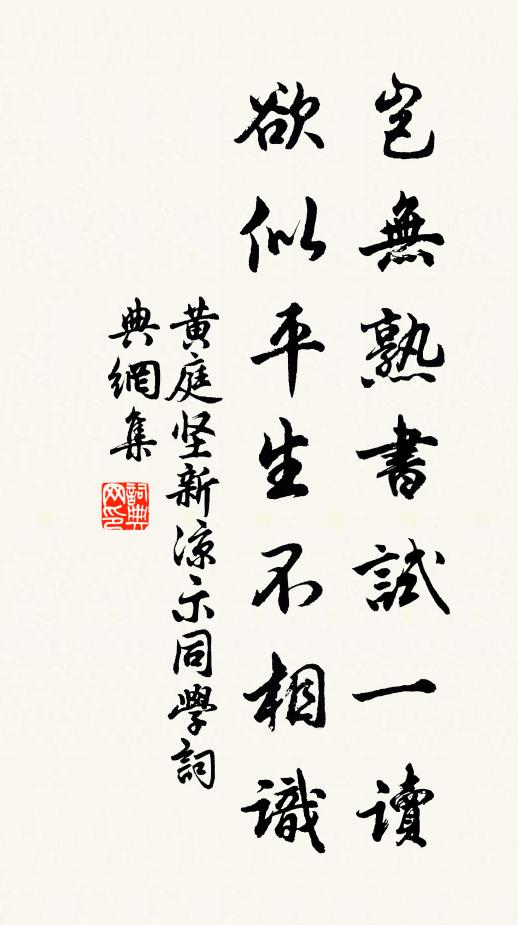 豈無熟書試一讀
欲似平生不相識
黃庭坚新凉示同學詞
典網集
詞典
网印